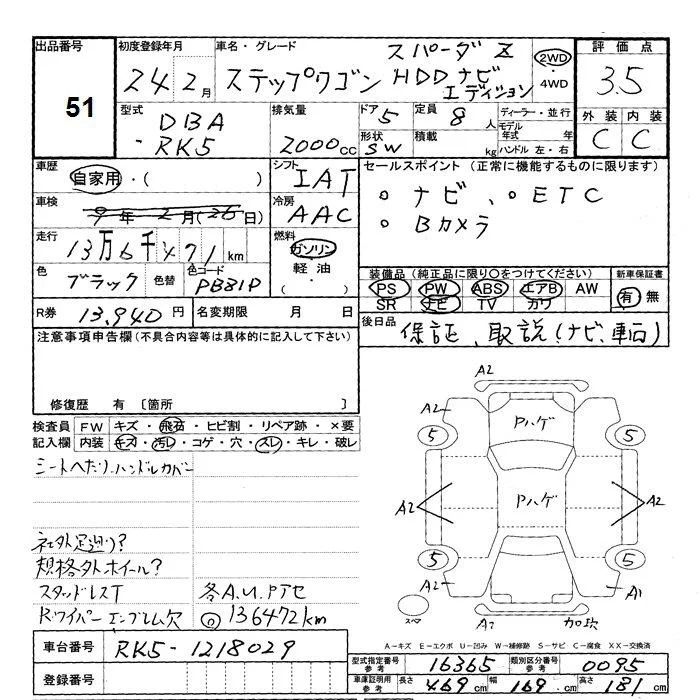 出品番号
51
初度登録年月
24 2月
車名・グレード
ステップワゴン スパーダ Z
HDDナビ
エディション
2WD
・
4WD
評価点
3.5
外装 内装
C C
型式
DBA
- RK5
排気量
2000cc
ドア
5
定員
8人
形状
SW
積載
kg
ディーラー・並行
モデル
年式 年
ハンドル 左・右
車歴
自家用・( )
シフト
IAT
セールスポイント (正常に機能するものに限ります)
○ ナビ、○ ETC
○ Bカメラ
車検
9年 2月(26日)
冷房
AAC
走行
13万6千471km
燃料
ガソリン
軽油
・( )
色
ブラック
色替
色コード
PB81P
装備品 (純正品に限り○をつけてください)
PS PW ABS エアB AW
SR ナビ TV カワ
新車保証書
有 無
R券 13,940円
名変期限 月 日
後日品
保証、取説(ナビ、車両)
注意事項申告欄(不具合内容等は具体的に記入して下さい)
修復歴 有 〔箇所 〕
検査員 FW キズ・飛石・ヒビ割・リペア跡・×要
記入欄 内装 キズ・汚レ・コゲ・穴・スレ・キレ・破レ
シートヘたり、ハンドルカバー
社外足廻り?
規格外ホイール?
スタッドレスT
Rワイパーエンブレム欠
各A.U.PTセ
◎ 136472km
A2
A2
A2
Pハゲ
5
5
A2
Pハゲ
A2
5
5
A2
A1
スペア
A2
加吹
A-キズ E-エクボ U-凹み W-補修跡 S-サビ C-腐食 XX-交換済
車台番号
RK5-1218029
登録番号
型式指定番号
参考
16365
類別区分番号
参考
0095
車庫証明用
参考
長さ
469cm
幅
169cm
高さ
181cm